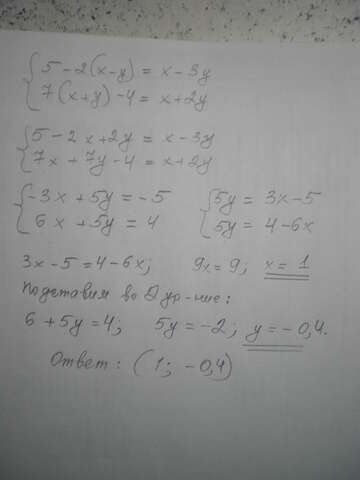 5 - 2(x-y) = x - 3y
7(x+y) - 4 = x + 2y
5 - 2x + 2y = x - 3y
7x + 7y - 4 = x + 2y
-3x + 5y = -5   5y = 3x - 5
6x + 5y = 4   5y = 4 - 6x
3x - 5 = 4 - 6x;   9x = 9;   x = 1
Подставим во 2 ур-ние:
6 + 5y = 4;   5y = -2;   y = -0,4.
Ответ: (1; -0,4)